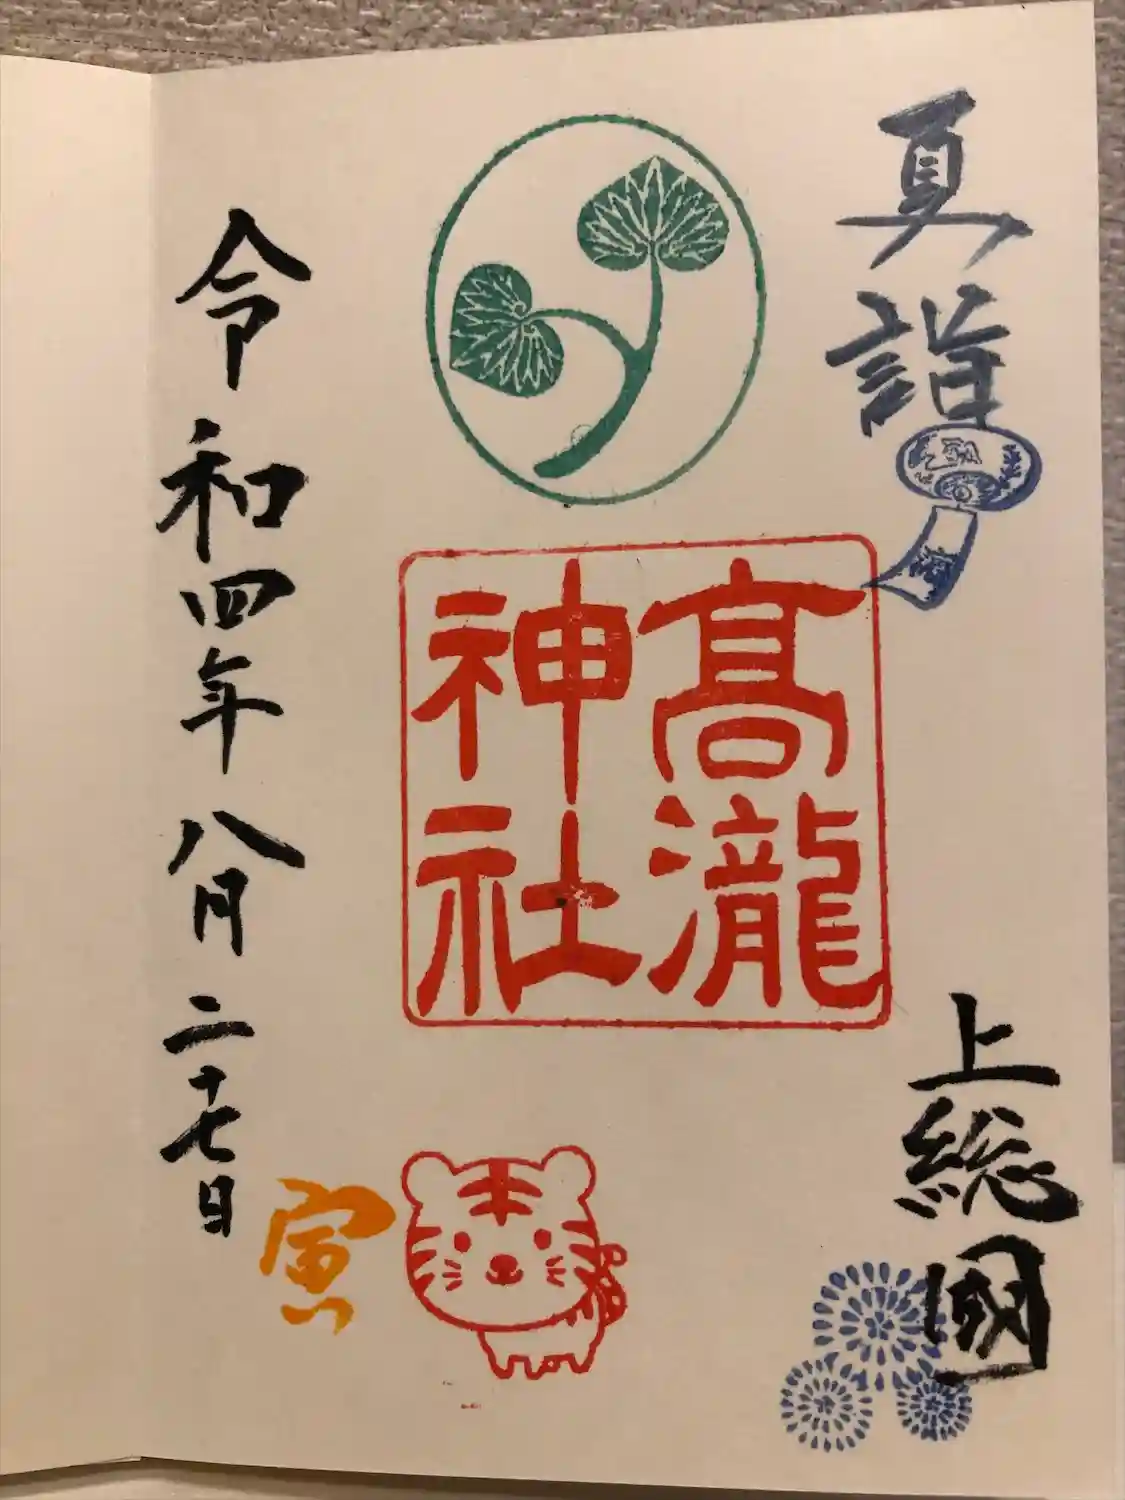 夏詣
上総國
髙瀧
神社
令和四年八月二十七日
寅